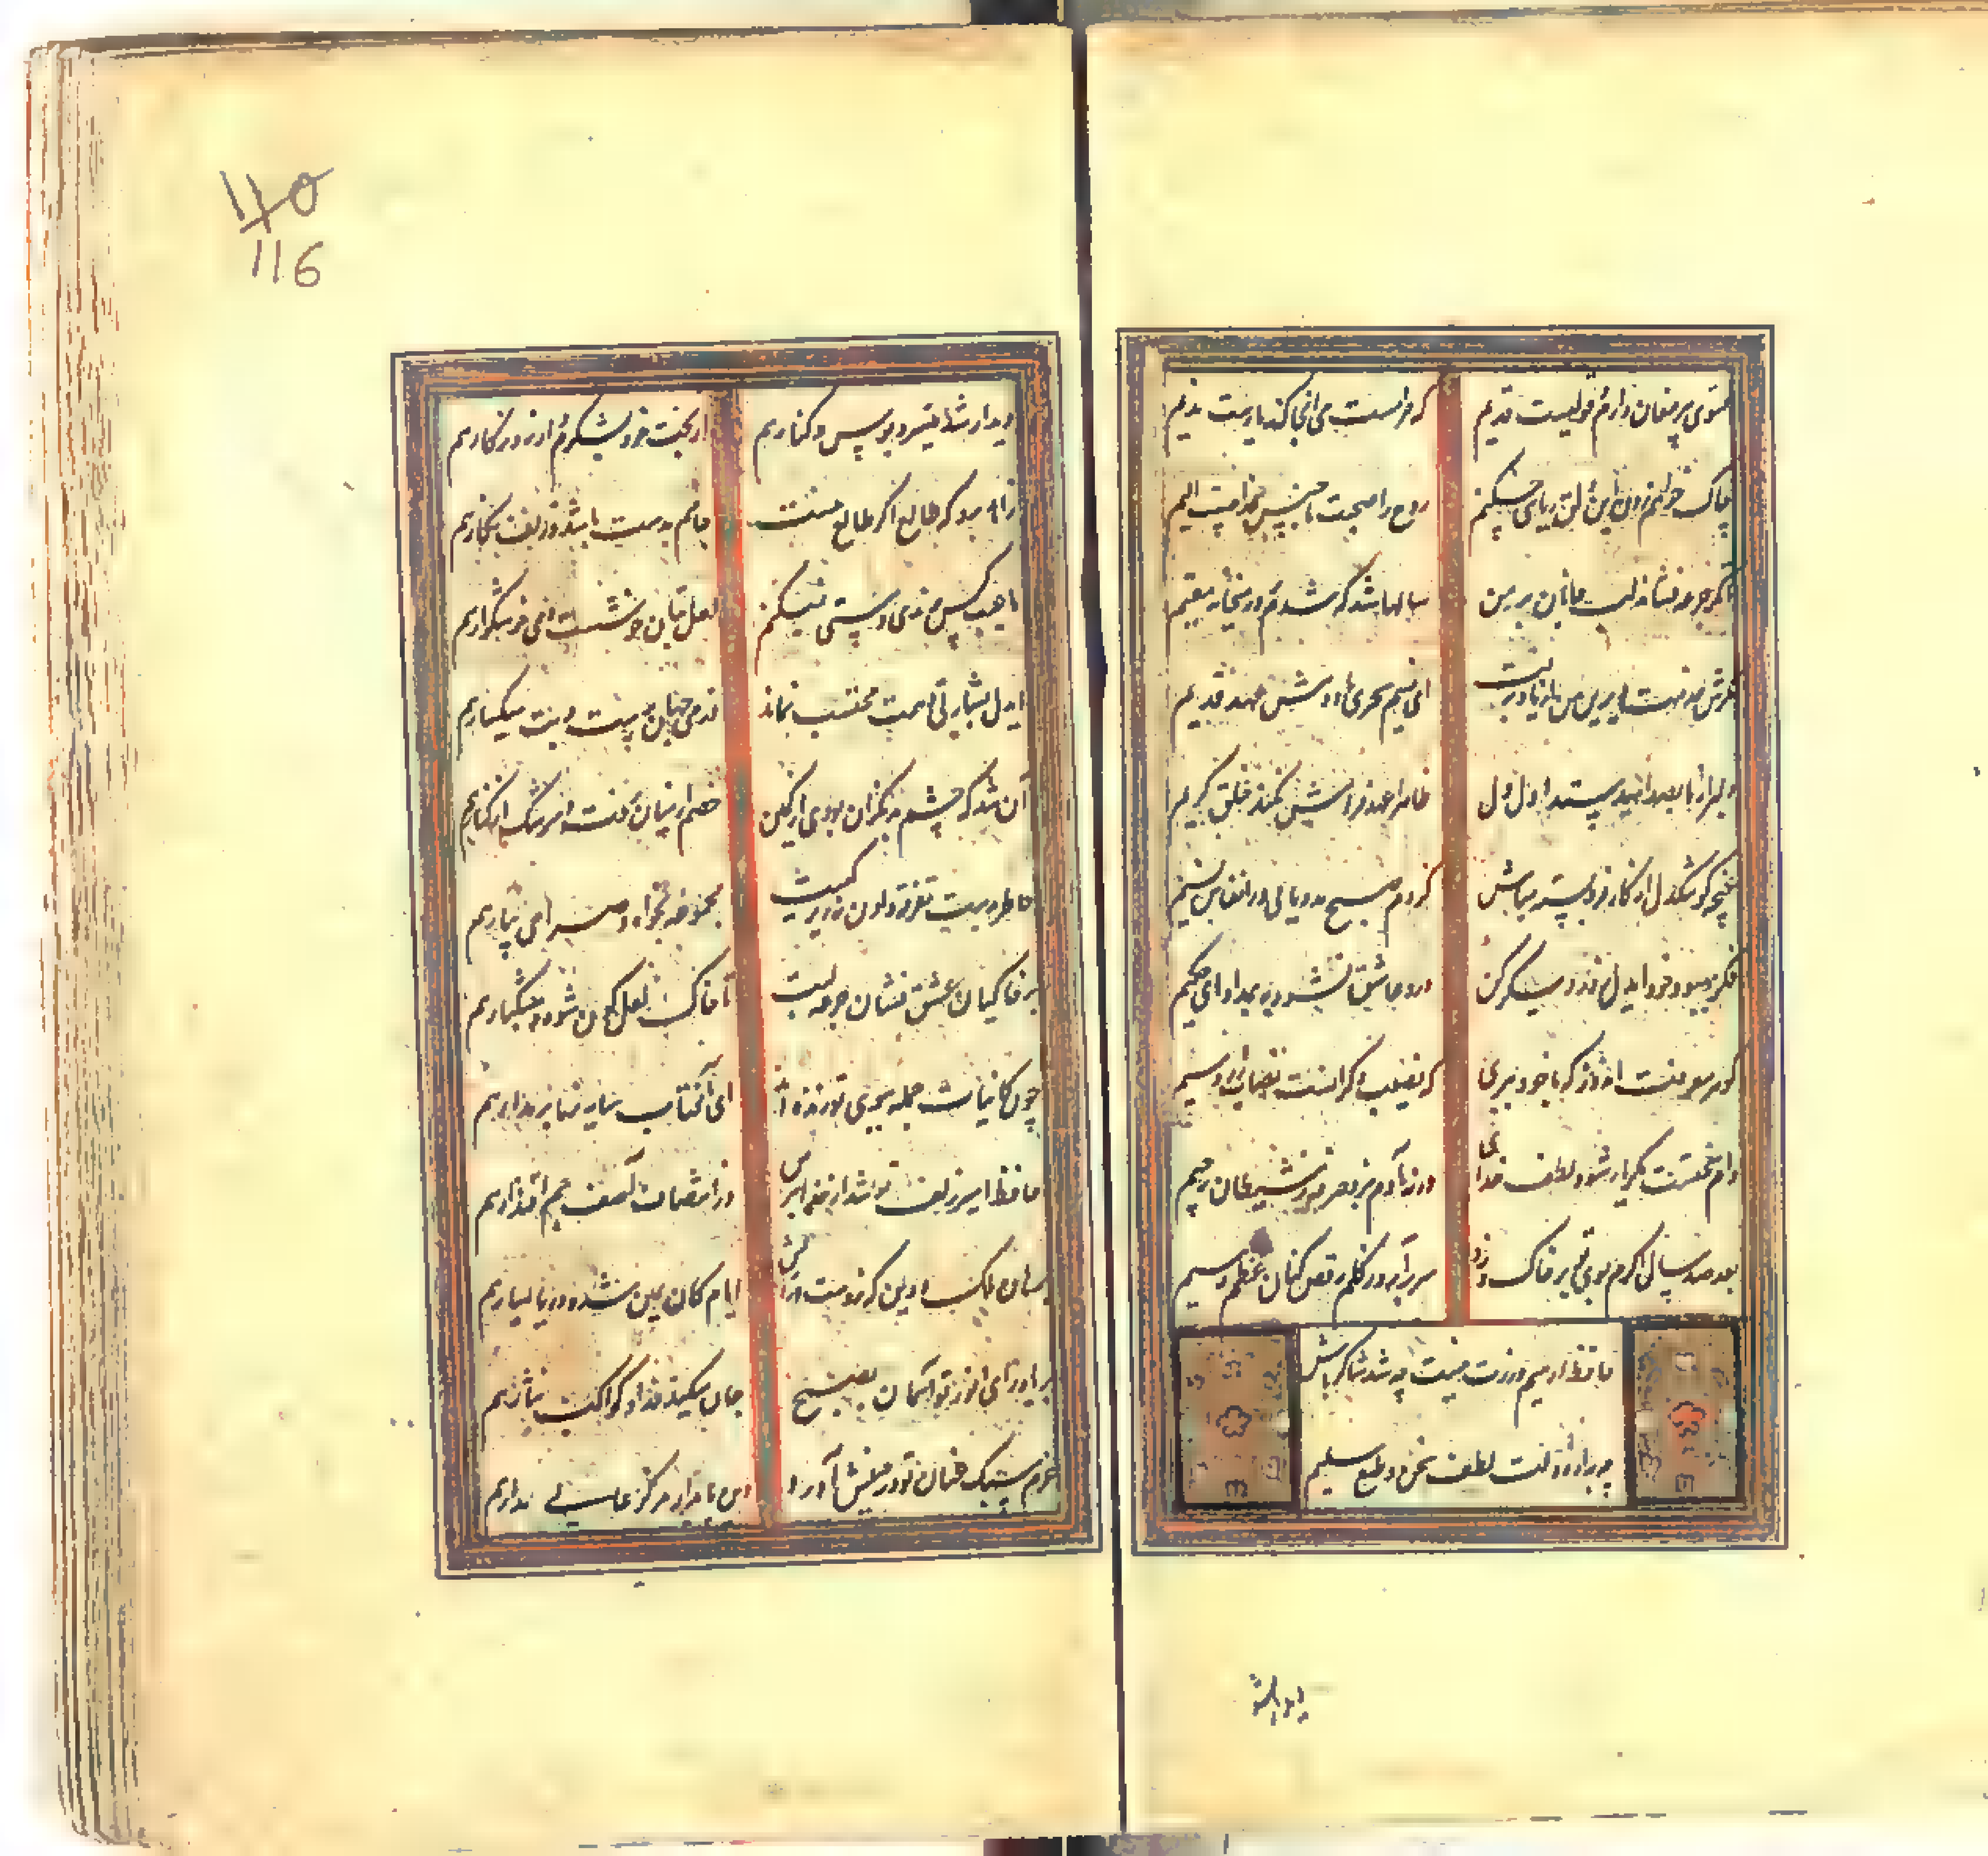 فتوی پیر مغان دارم و قولیست قدیم
که حرامست می انجا که نه یارست ندیم
چاک خواهم زدن این دلق ریایی چکنم
روح را صحبت ناجنس عذابیست الیم
تا مگر جرعه فشاند لب جانان بر من
سالها شد که شدم بر در میخانه مقیم
مگرش خدمت دیرین من از یاد برفت
ای نسیم سحری یاد دهش عهد قدیم
دلبر از ما بصد امید ستد اول دل
ظاهرا عهد فرامش نکند خلق کریم
غنچه گو تنگدل از کار فروبسته مباش
کز دم صبح مدد یابی و انفاس نسیم
فکر بهبود خود ایدل ز در دیگر کن
درد عاشق نشود به بمداوای حکیم
گوهر معرفت اندوز که با خود ببری
که نصیب دگرانست نصاب زر و سیم
دام سختست مگر یار شود لطف خدای
ورنه آدم نبرد صرفه ز شیطان رجیم
بعد صد سال اگرم بوی تو بر خاک وزد
سر برآرد ز گلم رقص کنان عظم رمیم
حافظ ار سیم و زرت نیست چه شد شاکر باش
چه به از دولت لطف سخن و طبع سلیم
دیدار شد
110
116
دیدار شد میسر و بوس و کنار هم
از بخت خود بشکرم و از روزگار هم
زاهد برو که طالع اگر طالع منست
جامم بدست باشد و زلف نگار هم
ما عیب کس برندی و مستی نمیکنیم
لعل بتان خوشست و می خوشگوار هم
ایدل بشارتی دهمت محتسب نماند
وز می جهان پرست و بت میگسار هم
آن شد که چشم بد نگران بودی از کمین
خصم از میان برفت و سرشک از کنار هم
خاطر بدست تفرقه دادن نه زیرکیست
مجموعه بخواه و صراحی بیار هم
بر خاکیان عشق فشان جرعه لبت
تا خاک لعل گون شود و مشکبار هم
چون کاینات جمله ببوی تو زنده اند
ای آفتاب سایه ز ما بر مدار هم
حافظ اسیر زلف تو شد از خدا بترس
وز انتصاف آصف جم اقتدار هم
برهان ملک و دین که ز دست وزارتش
ایام کان یمین شد و دریا یسار هم
بر یاد رای انور تو آسمان بصبح
جان میکند فدا و کواکب نثار هم
عزم سبک عنان تو در جنبش آورد
این پایدار مرکز عالی مدار هم